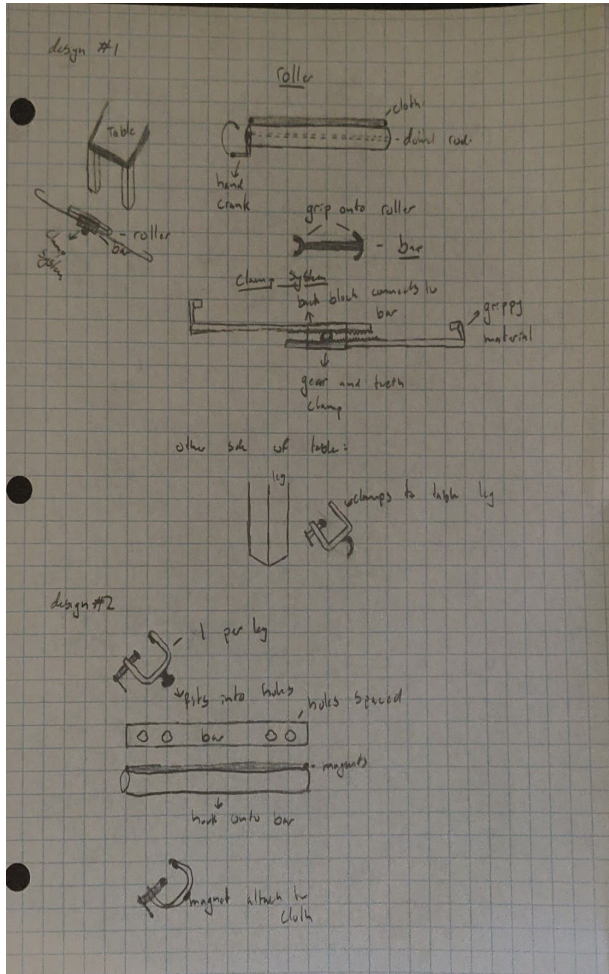 design #1
roller
Table
cloth
- dowl rod
hand
crank
grip onto roller
- roller
bar
- bar
clamp system
back block connects to
bar
grippy
material
gear and teeth
clamp
other side of table:
leg
clamps to table leg
design #2
1 per leg
fits into holes
holes spaced
bar
- magnets
hook onto bar
magnet attach to
cloth